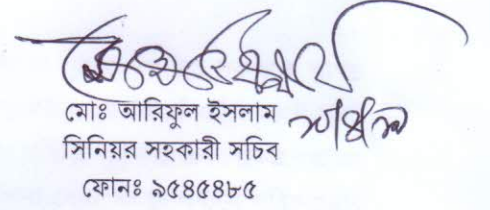 মোঃ আরিফুল ইসলাম
সিনিয়র সহকারী সচিব
ফোনঃ ৯৫৪৫৪৮৫